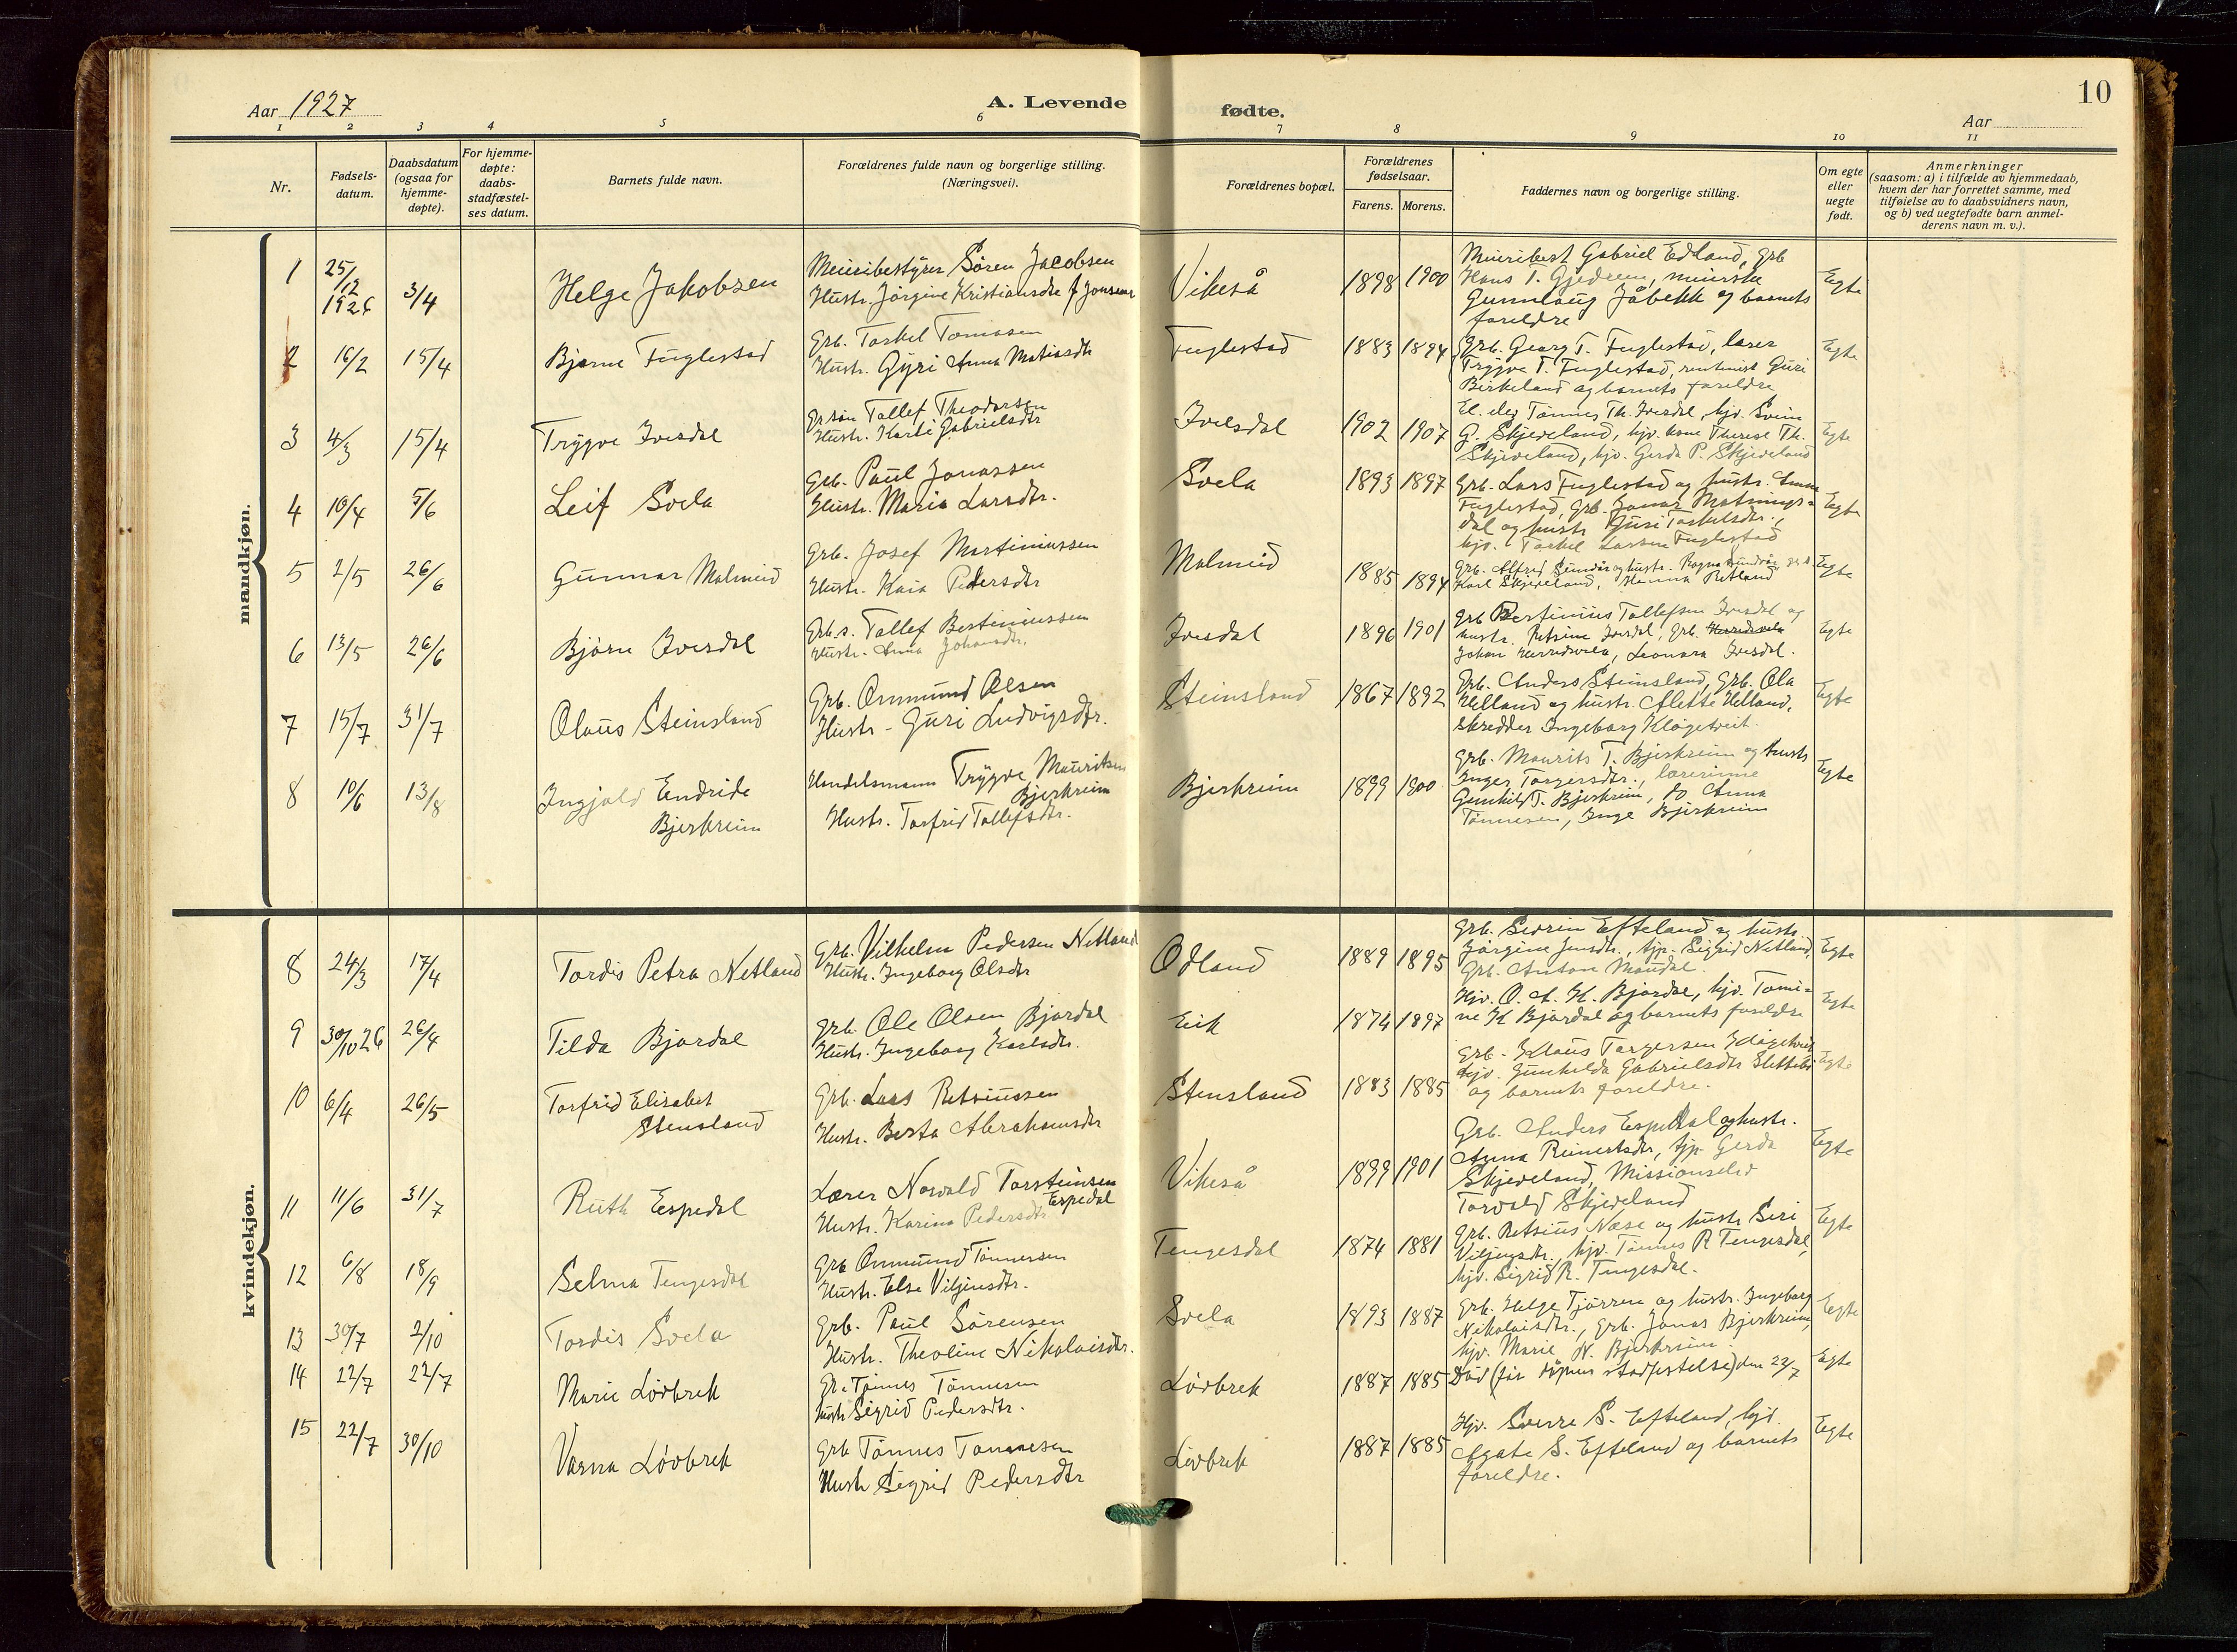 10
Aar 1927
A. Levende fødte.
Aar
1 2 3 4 5 6 7 8 9 10 11
Nr.
Fødsels-
datum.
Daabsdatum
(ogsaa for
hjemme-
døpte).
For hjemme-
døpte:
daabs-
stadfæstel-
ses datum.
Barnets fulde navn.
Forældrenes fulde navn og borgerlige stilling.
(Næringsvei).
Forældrenes bopæl.
Forældrenes
fødselsaar.
Farens. Morens.
Faddernes navn og borgerlige stilling.
Om egte
eller
uegte
født.
Anmerkninger
(saasom: a) i tilfælde av hjemmedaab,
hvem der har forrettet samme, med
tilføielse av to daabsvidners navn,
og b) ved uegtefødte barn anmel-
derens navn m. v.).
mandkjøn.
1 25/12 1926 3/4 Helge Jakobsen
Meieribestyrer Sören Jacobsen
Hustr. Jörgine Kristiansdtr f
Vikeså 1898 1900
Meieribest Gabriel Edland, Grb
Hans T. Gjedrem, meierske
Gunnlaug Jåbekk og barnets
foreldre
Egte
2 16/2 15/4 Bjarne Fuglestad
Grb. Torkel Tomasen
Hustr. Gyri Anna Matiasdtr
Fuglestad 1883 1894
Grb. Georg T. Fuglestad, lærer
Trygve T. Fuglestad, Guri
Birkeland og barnets foreldre
Egte
3 4/3 15/4 Trygve Ivesdal
Tollef Theodorsen
Hustr. Gabrielsdtr
Ivesdal 1902 1907
Tönnes Th. Ivesdal, hjv. Svein
G. Skjeveland, hjv. kone Therese Th.
Skjeveland, hjv. Gerda P. Skjeveland
Egte
4 10/4 5/6 Leif Svela
Grb. Paul Jonassen
Hustr. Maria Larsdtr.
Svela 1893 1897
Grb. Lars Fuglestad og hustr. Anna
Fuglestad, Grb. Jonas Matnings=
dal og hustr Guri Torkelsdtr.,
hjv. Torkel Larsen Fuglestad
Egte
5 2/5 26/6 Gunnar Malmeid
Grb. Josef Martiniussen
Hustr. Kaia Pedersdtr
Malmeid 1885 1894
Grb. Alfred og hustr. Ragna
Karl Skjeveland, Hanna Retland
Egte
6 13/5 26/6 Björn Ivesdal
Grb.s. Tollef Bertiniussen
Hustr. Anna Johansdtr.
Ivesdal 1896 1901
Grb Bertinius Tollefsen Ivesdal og
hustr. Retsine Ivesdal, Grb.
Johan , Leonora Ivesdal.
Egte
7 15/7 31/7 Olaus Steinsland
Grb. Ommund Olsen
Hustr - Guri Ludvigsdtr.
Steinsland 1867 1892
Grb. Anders Steinsland, Grb. Ola
Helland og hustr. Alette Helland,
skredder Ingeborg Klögetveit.
Egte
8 10/6 13/8 Ingjald Endride
Bjerkreim
Handelsmann Trygve Mauritsen
Bjerkreim
Hustr. Torfrid Tollefsdtr.
Bjerkreim 1899 1900
Grb. Maurits T. Bjerkreim og hustr
Inger Torgersdtr., lærerinne
Gunhild T. Bjerkreim, do Anna
Tönnesen, Inge Bjerkreim
Egte
kvindekjøn.
8 24/3 17/4 Tordis Petra Netland
Grb. Vilhelm Pedersen Netland
Hustr. Ingeborg Olsdtr
Odland 1889 1895
Grb. Severin Efteland og hustr.
Jörgine Jensdtr., tjp. Sigrid Netland,
Grb. Anton Maudal.
Egte
9 30/10 26 26/4 Tilda Bjordal
Grb. Ole Olsen Bjordal
Hustr. Ingeborg Karlsdtr.
Eik 1874 1897
Hjv. O. A. K. Bjordal, hjv. Tomi=
ne K Bjordal og barnets foreldre
Egte
10 6/4 26/5 Torfrid Elisabet
Stensland
Grb. Lars Retsiussen
Hustr. Berta Abrahamsdtr
Stensland 1883 1885
Grb. Klaus Torgersen Klögetveit
hjv. Gunhilda Gabrielsdtr Slettebö
og barnets foreldre.
Egte
11 11/6 31/7 Ruth Espedal
Lærer Norvald Torsteinsen
Espedal
Hustr. Karina Pedersdtr
Vikeså 1899 1901
Grb. Anders Espedal og hustr.
Anna Reinertsdtr, tjp Gerda
Skjeveland, Missionselev
Torvald Skjeveland
Egte
12 6/8 18/9 Selma Tengesdal
Grb Ommund Tönnersen
Hustr. Else Viljensdtr.
Tengesdal 1874 1881
Grb. Retsius Næse og hustr Seri
Viljensdtr., hjv. Tönnes R Tengesdal,
hjv. Sigrid R. Tengesdal.
Egte
13 30/7 2/10 Tordis Svela
Grb. Paul Sörensen
Hustr. Theoline Nikolaisdtr.
Svela 1893 1887
Grb. Helge Tjörrom og hustr. Ingeborg
Nikolaisdtr., Grb. Jonas Bjerkreim,
hjv. Marie N. Bjerkreim.
Egte
14 22/7 22/7 Marie Lövbrek
Gr. Tönnes Tönnesen
Hustr Sigrid Pedersdtr.
Lövbrek 1887 1885
Död (för dåpens stadfestelse) den 23/7
Egte
15 22/7 30/10 Varna Lövbrek
Grb Tönnes Tönnesen
Hustr Sigrid Pedersdtr
Lövbrek 1887 1885
Hjv. Sverre S. Efteland, hjv.
Agate S. Efteland og barnets
foreldre.
Egte